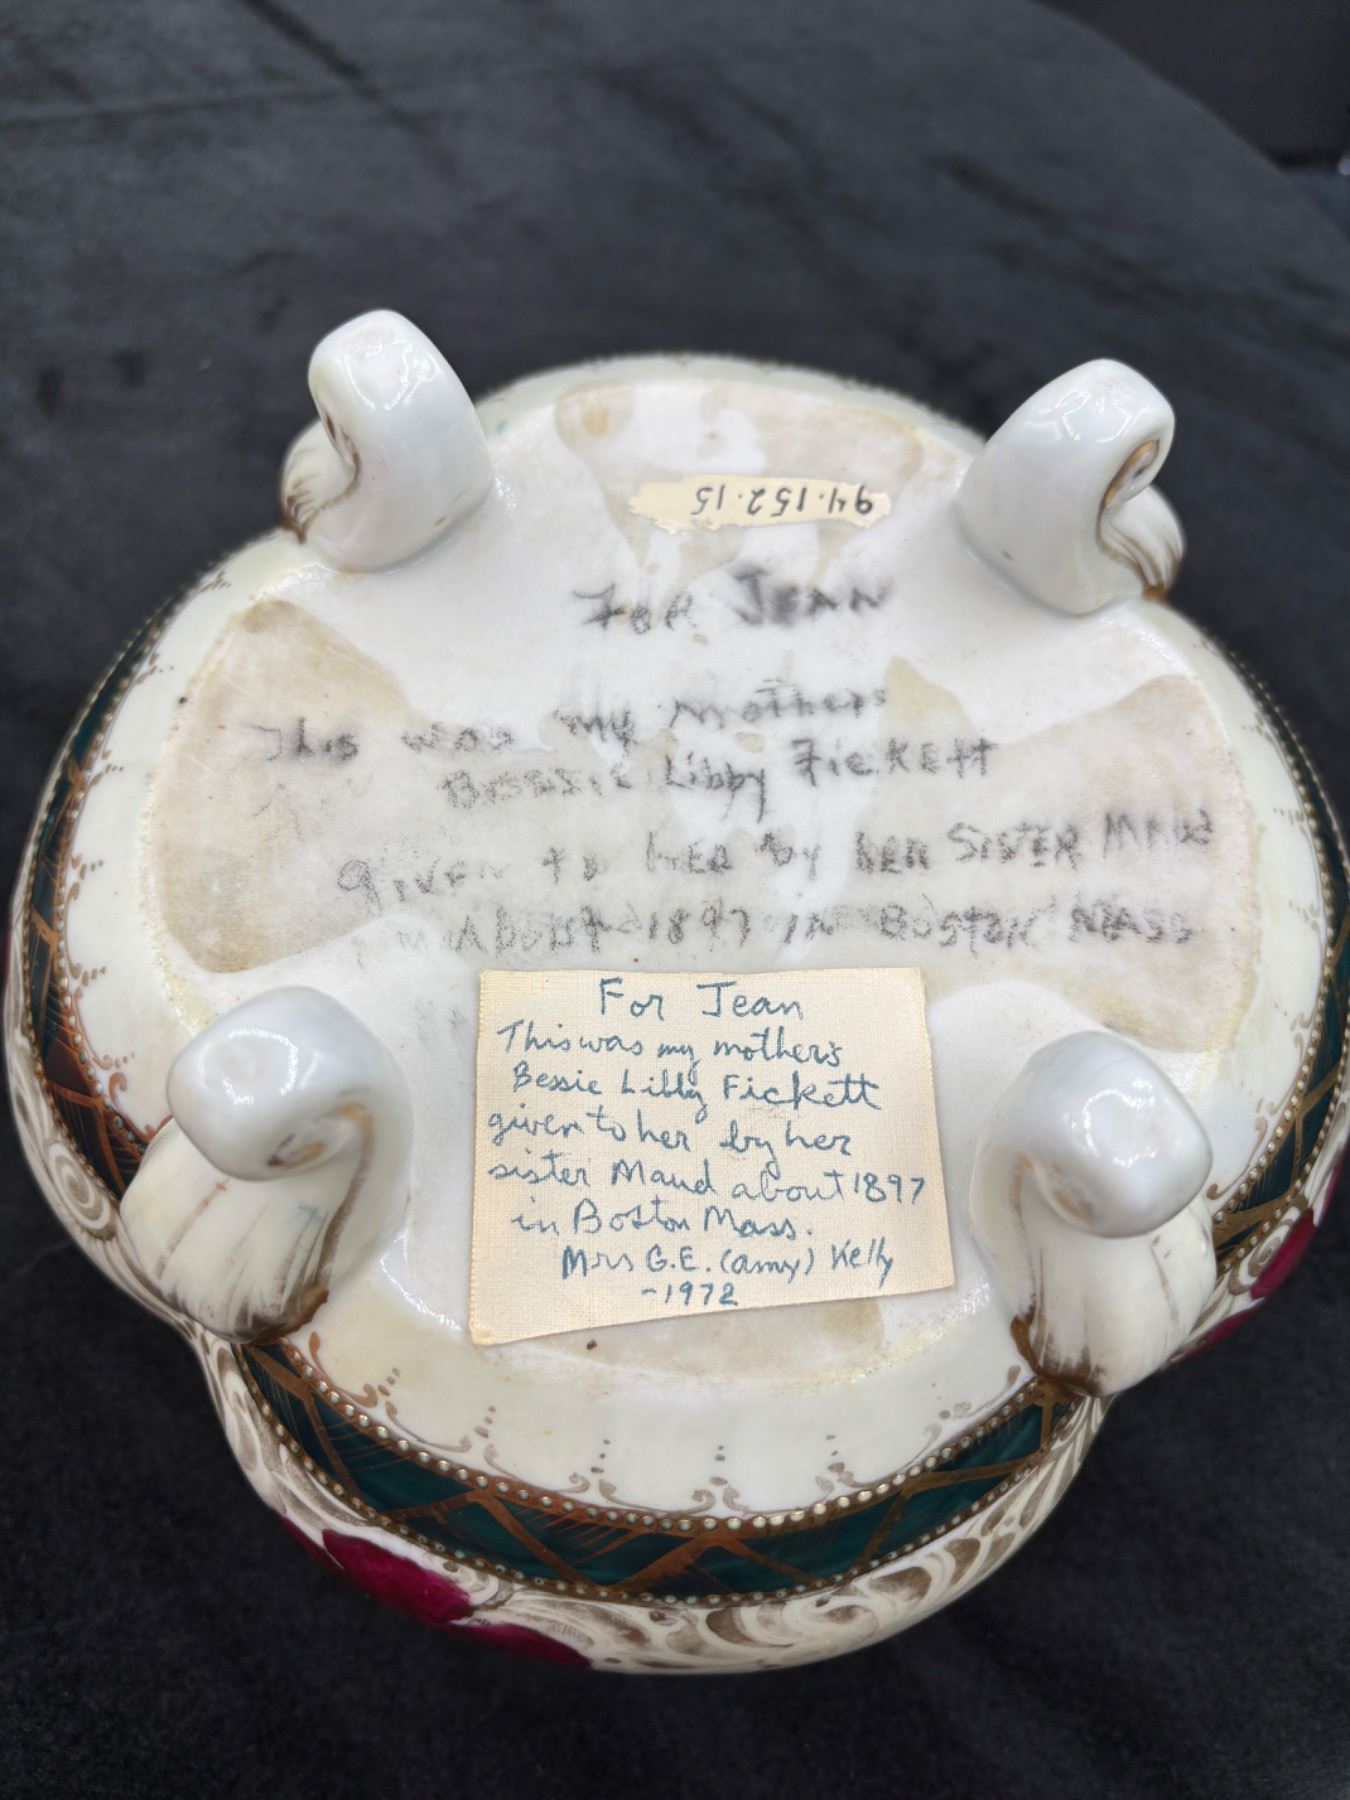 94.152.15
FOR JEAN
This was my mothers
BESSIE Libby FicKETT
given to her by her SISTER MAUD
About 1897 in Boston MASS
For Jean
This was my mother's
Bessie Libby Fickett
given to her by her
sister Maud about 1897
in Boston Mass.
Mrs G.E. (Amy) Kelly
-1972